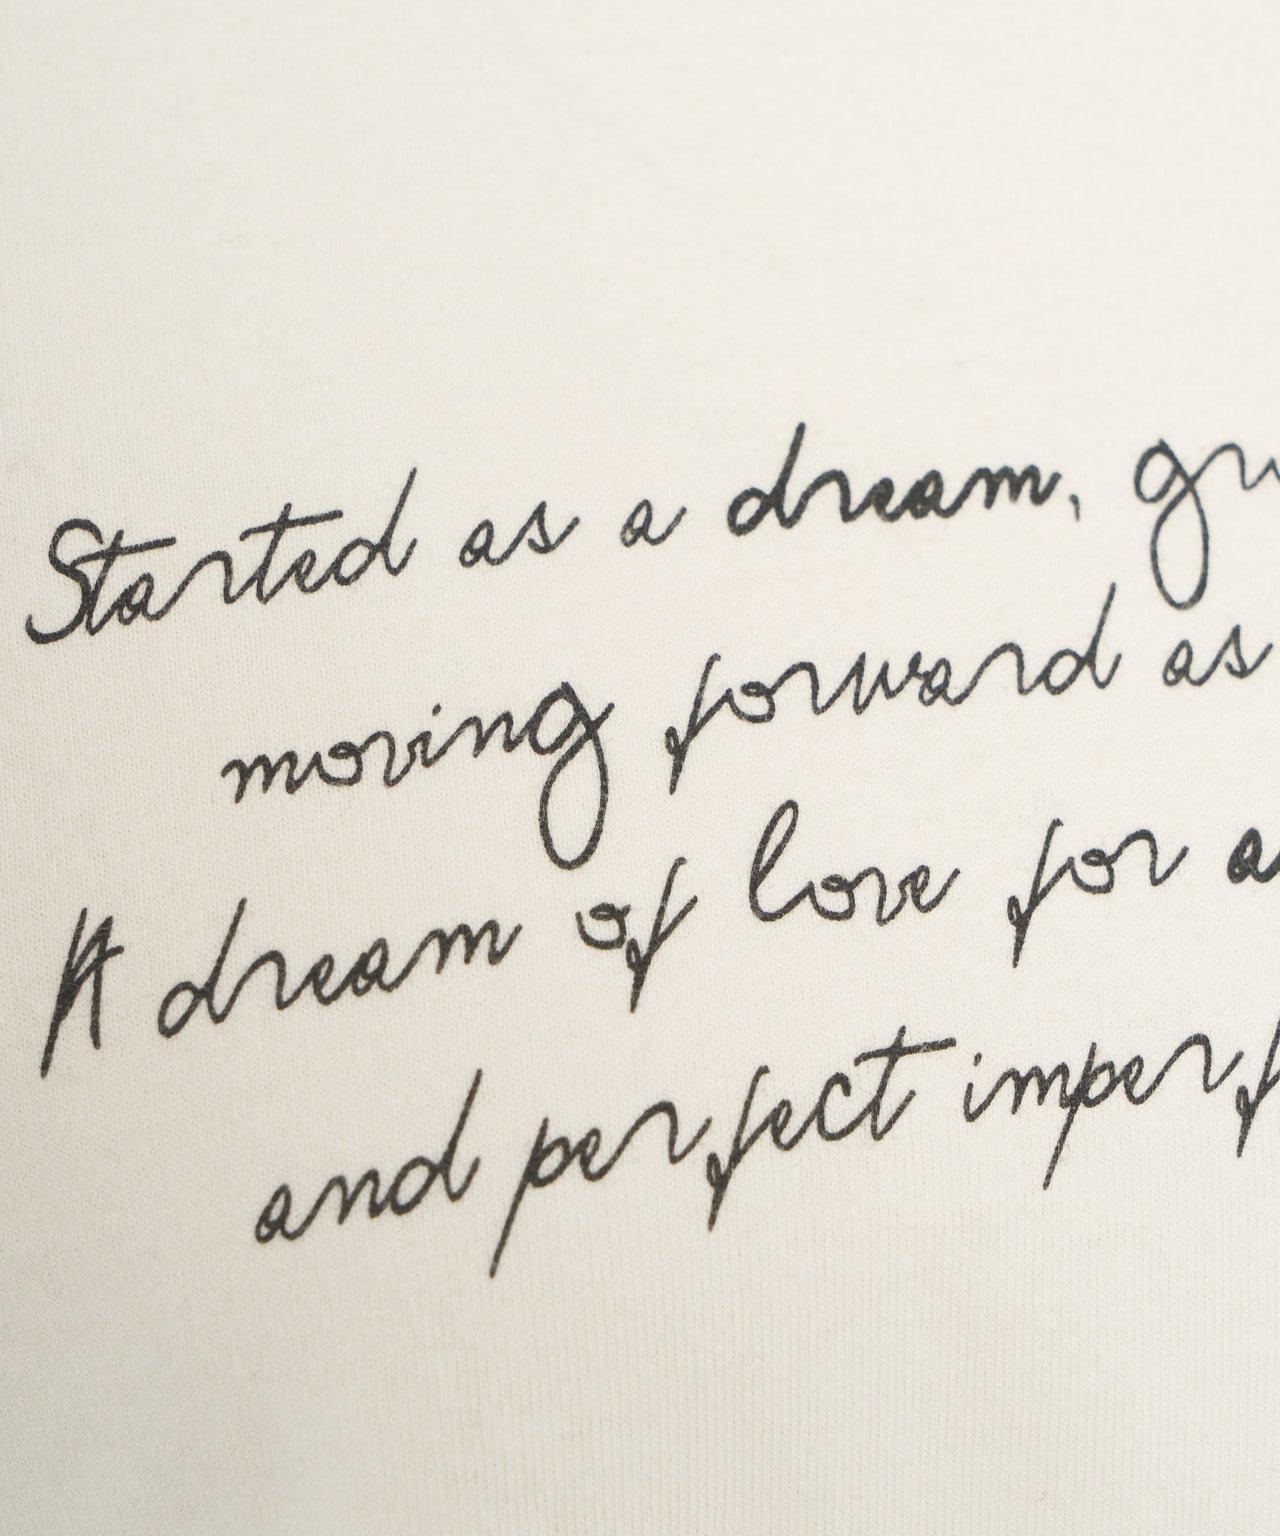 Started as a dream,
moving forward as
A dream of love for
and perfect